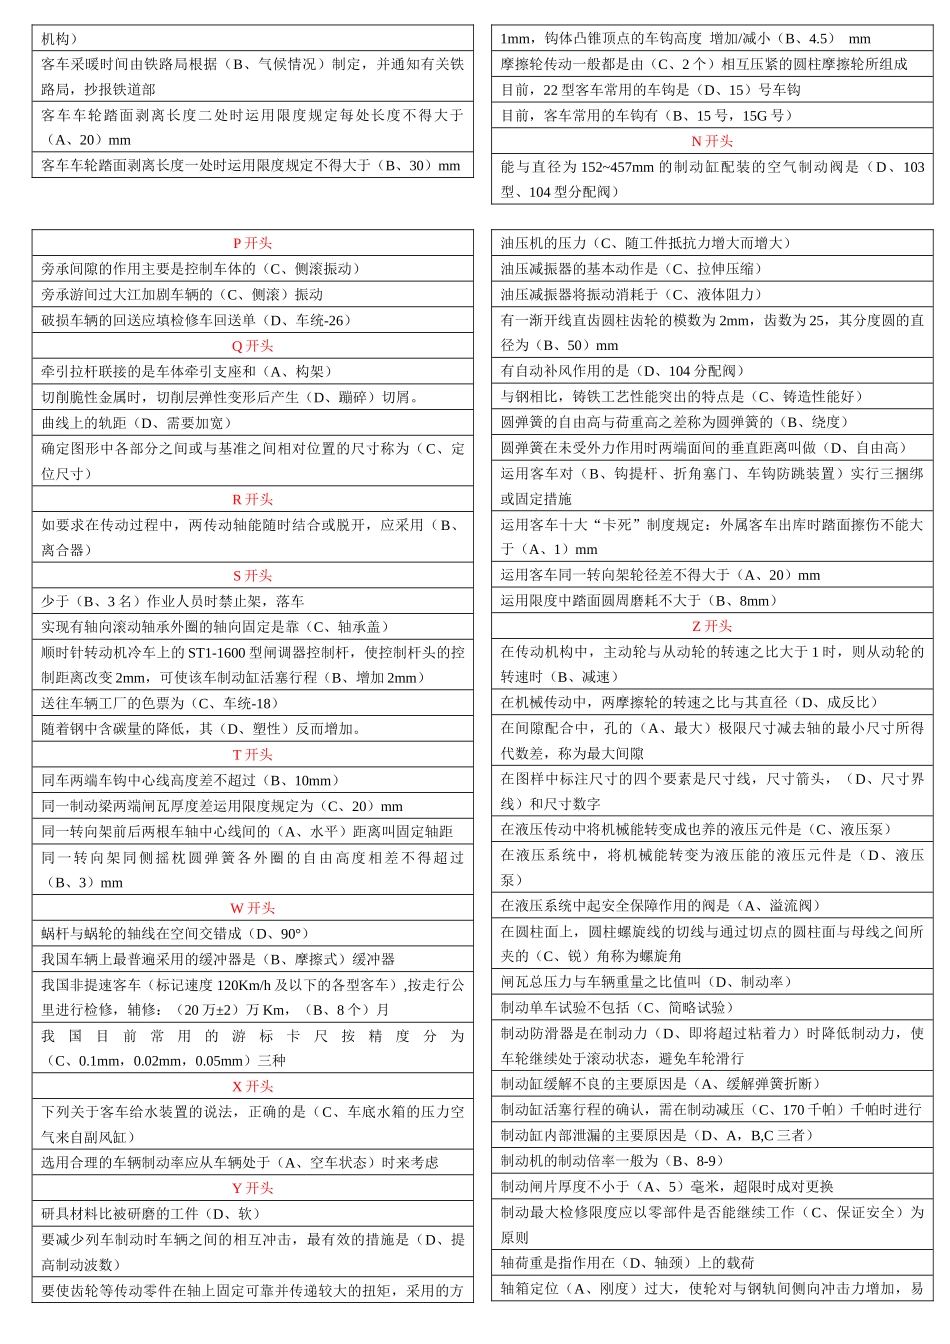 机构）
客车采暖时间由铁路局根据（B、气候情况）制定，并通知有关铁
路局，抄报铁道部
客车车轮踏面剥离长度二处时运用限度规定每处长度不得大于
（A、20）mm
客车车轮踏面剥离长度一处时运用限度规定不得大于（B、30）mm
1mm，钩体凸锥顶点的车钩高度 增加/减小（B、4.5） mm
摩擦轮传动一般都是由（C、2 个）相互压紧的圆柱摩擦轮所组成
目前，22 型客车常用的车钩是（D、15）号车钩
目前，客车常用的车钩有（B、15 号，15G 号）
N 开头
能与直径为 152~457mm 的制动缸配装的空气制动阀是（D、103
型、104 型分配阀）
P 开头
旁承间隙的作用主要是控制车体的（C、侧滚振动）
旁承游间过大江加剧车辆的（C、侧滚）振动
破损车辆的回送应填检修车回送单（D、车统-26）
Q 开头
牵引拉杆联接的是车体牵引支座和（A、构架）
切削脆性金属时，切削层弹性变形后产生（D、蹦碎）切屑。
曲线上的轨距（D、需要加宽）
确定图形中各部分之间或与基准之间相对位置的尺寸称为（C、定
位尺寸）
R 开头
如要求在传动过程中，两传动轴能随时结合或脱开，应采用（B、
离合器）
S 开头
少于（B、3 名）作业人员时禁止架，落车
实现有轴向滚动轴承外圈的轴向固定是靠（C、轴承盖）
顺时针转动机冷车上的 ST1-1600 型闸调器控制杆，使控制杆头的控
制距离改变 2mm，可使该车制动缸活塞行程（B、增加 2mm）
送往车辆工厂的色票为（C、车统-18）
随着钢中含碳量的降低，其（D、塑性）反而增加。
T 开头
同车两端车钩中心线高度差不超过（B、10mm）
同一制动梁两端闸瓦厚度差运用限度规定为（C、20）mm
同一转向架前后两根车轴中心线间的（A、水平）距离叫固定轴距
同一转向架同侧摇枕圆弹簧各外圈的自由高度相差不得超过
（B、3）mm
W 开头
蜗杆与蜗轮的轴线在空间交错成（D、90°）
我国车辆上最普遍采用的缓冲器是（B、摩擦式）缓冲器
我国非提速客车（标记速度 120Km/h 及以下的各型客车）,按走行公
里进行检修，辅修：（20 万±2）万 Km，（B、8 个）月
我国目前常用的游标卡尺按精度分为
（C、0.1mm，0.02mm，0.05mm）三种
X 开头
下列关于客车给水装置的说法，正确的是（C、车底水箱的压力空
气来自副风缸）
选用合理的车辆制动率应从车辆处于（A、空车状态）时来考虑
Y 开头
研具材料比被研磨的工件（D、软）
要减少列车制动时车辆之间的相互冲击，最有效的措施是（D、提
高制动波数）
要使齿轮等传动零件在轴上固定可靠并传递较大的扭矩，采用的方
油压机的压力（C、随工件抵抗力增大而增大）
油压减振器的基本动作是（C、拉伸压缩）
油压减振器将振动消耗于（C、液体阻力）
有一渐开线直齿圆柱齿轮的模数为 2mm，齿数为 25，其分度圆的直
径为（B、50）mm
有自动补风作用的是（D、104 分配阀）
与钢相比，铸铁工艺性能突出的特点是（C、铸造性能好）
圆弹簧的自由高与荷重高之差称为圆弹簧的（B、绕度）
圆弹簧在未受外力作用时两端面间的垂直距离叫做（D、自由高）
运用客车对（B、钩提杆、折角塞门、车钩防跳装置）实行三捆绑
或固定措施
运用客车十大“卡死”制度规定：外属客车出库时踏面擦伤不能大
于（A、1）mm
运用客车同一转向架轮径差不得大于（A、20）mm
运用限度中踏面圆周磨耗不大于（B、8mm）
Z 开头
在传动机构中，主动轮与从动轮的转速之比大于 1 时，则从动轮的
转速时（B、减速）
在机械传动中，两摩擦轮的转速之比与其直径（D、成反比）
在间隙配合中，孔的（A、最大）极限尺寸减去轴的最小尺寸所得
代数差，称为最大间隙
在图样中标注尺寸的四个要素是尺寸线，尺寸箭头，（D、尺寸界
线）和尺寸数字
在液压传动中将机械能转变成也养的液压元件是（C、液压泵）
在液压系统中，将机械能转变为液压能的液压元件是（D、液压
泵）
在液压系统中起安全保障作用的阀是（A、溢流阀）
在圆柱面上，圆柱螺旋线的切线与通过切点的圆柱面与母线之间所
夹的（C、锐）角称为螺旋角
闸瓦总压力与车辆重量之比值叫（D、制动率）
制动单车试验不包括（C、简略试验）
制动防滑器是在制动力（D、即将超过粘着力）时降低制动力，使
车轮继续处于滚动状态，避免车轮滑行
制动缸缓解不良的主要原因是（A、缓解弹簧折断）
制动缸活塞行程的确认，需在制动减压（C、170 千帕）千帕时进行
制动缸内部泄漏的主要原因是（D、A，B,C 三者）
制动机的制动倍率一般为（B、8-9）
制动闸片厚度不小于（A、5）毫米，超限时成对更换
制动最大检修限度应以零部件是否能继续工作（C、保证安全）为
原则
轴荷重是指作用在（D、轴颈）上的载荷
轴箱定位（A、刚度）过大，使轮对与钢轨间侧向冲击力增加，易